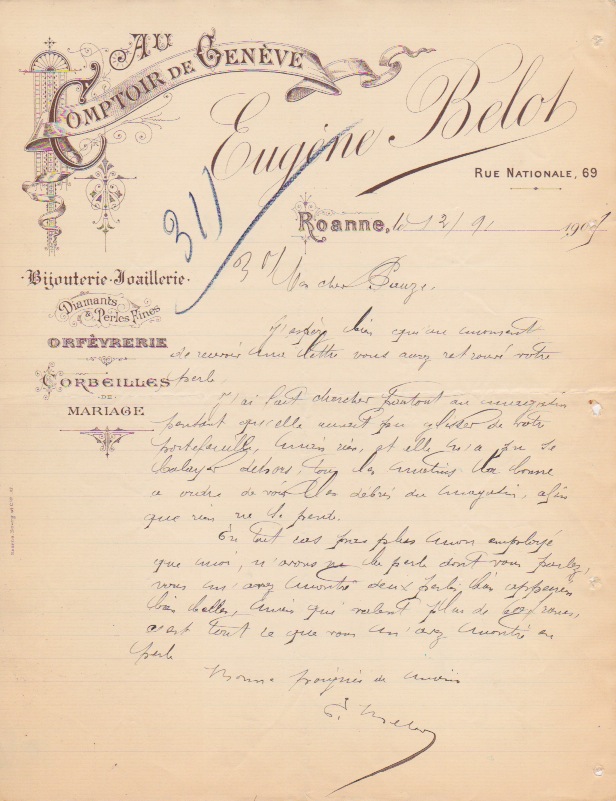 AU
COMPTOIR DE GENÈVE
Eugène Belot
RUE NATIONALE, 69
ROANNE, le 12/9 190
311
Bijouterie-Joaillerie
Diamants
& Perles Fines
ORFÈVRERIE
CORBEILLES
DE
MARIAGE
Mon cher Pauze,
J'espère bien qu'au moment
de recevoir ma lettre vous aurez retrouvé votre
perle.
J'ai fait chercher partout au magasin
pensant qu'elle aurait pu glisser de votre
portefeuille, mais rien, et elle n'a pu se
balayer dehors, tous les matins la bonne
a ordre de voir les débris du magasin, afin
que rien ne se perde.
En tout cas pas plus mon employé
que moi, n'avons vu la perle dont vous parlez,
vous m'avez montré deux perles, bien appairées
bien belles, mais qui valent plus de
c'est tout ce que vous m'avez montré en
perle
Bonne poignée de main
E. Belot